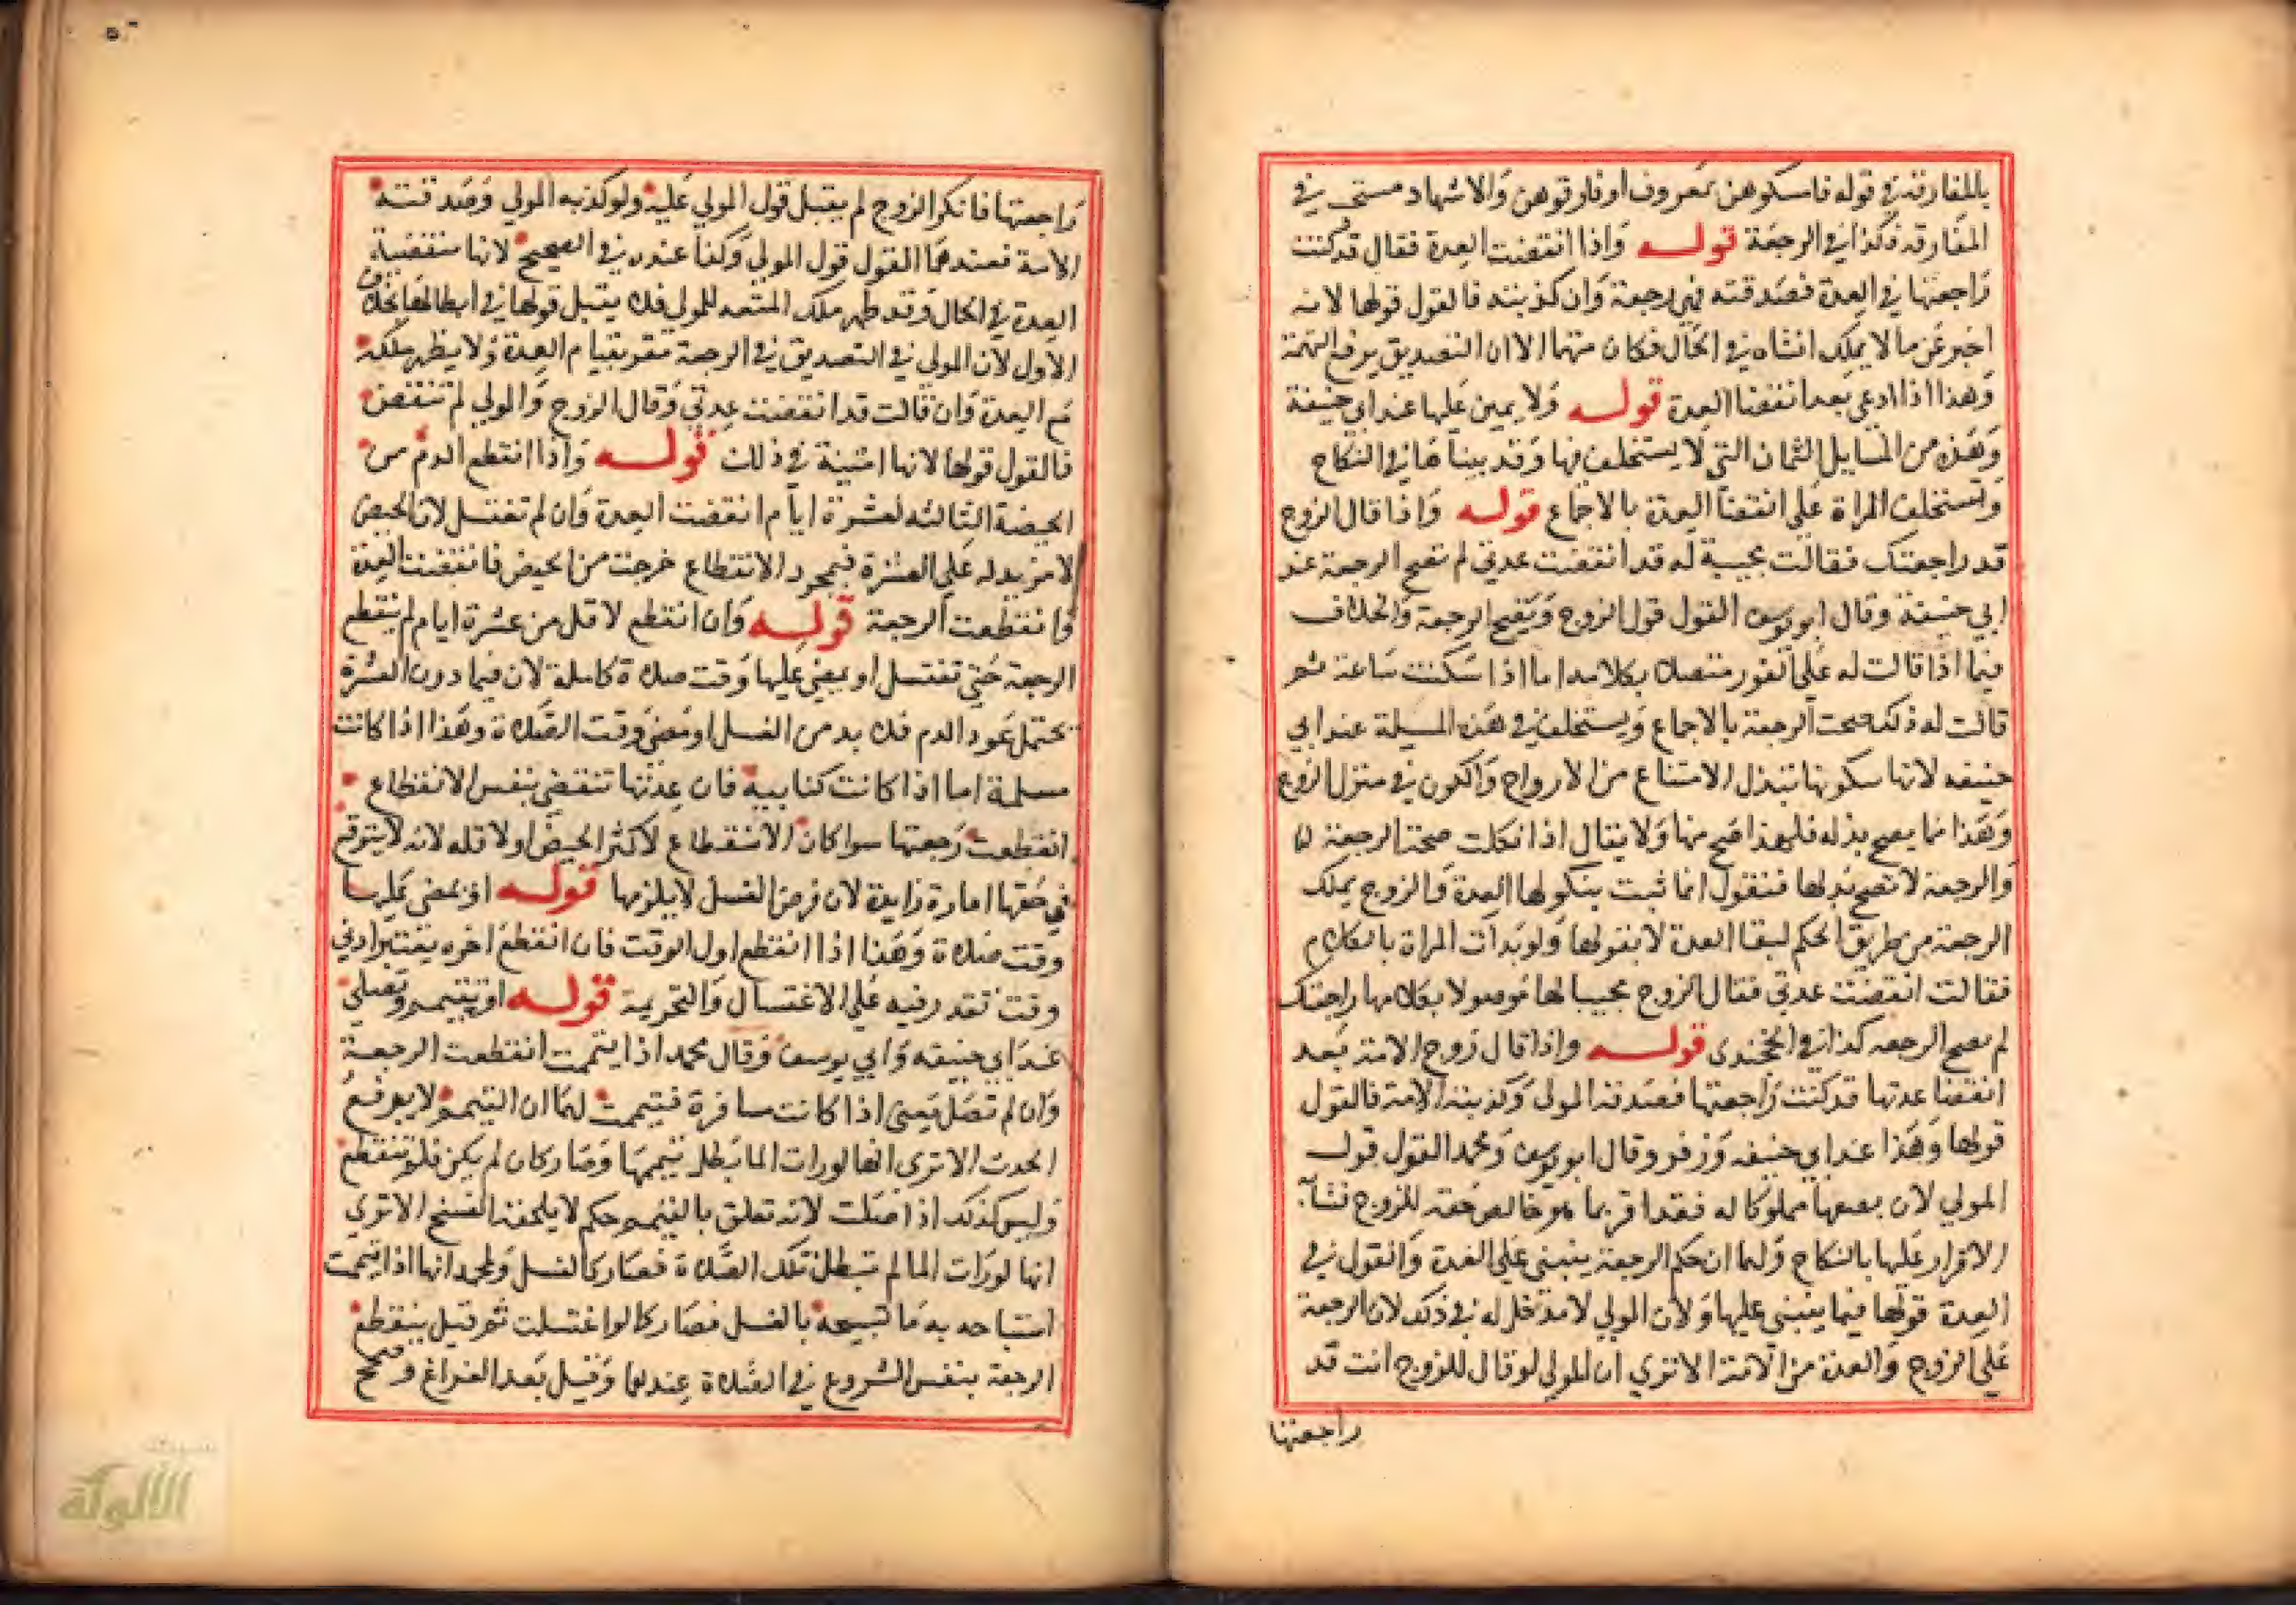 بالمفارقة في قوله فامسكوهن بمعروف او فارقوهن والاشهاد مستحب في
المفارقة فكذا في الرجعة قوله واذا انقضت العدة فقال قد كنت
راجعتها في العدة فصدقته فهي رجعة وان كذبته فالقول قولها لانه
اخبر عن ما لا يملك انشاه في الحال فكان متهما الا ان التصديق يرفع التهمة
وهذا اذا ادعي بعد انقضا العدة قوله ولا يمين عليها عند ابي حنيفة
وهذه من المسايل الثمان التي لا يستحلف فيها وقد بيناها في النكاح
وتستحلف المراة علي انقضا العدة بالاجماع قوله واذا قال الزوج
قد راجعتك فقالت مجيبة له قد انقضت عدتي لم تصح الرجعة عند
ابي حنيفة وقال ابو يوسف القول قول الزوج وتصح الرجعة والخلاف
فيما اذا قالت له علي الفور متصلا بكلامه اما اذا سكتت ساعة ثم
قالت له ذلك صحت الرجعة بالاجماع ويستحلف في هذه المسيلة عند ابي
حنيفه لانها سكوتها تبذل الامتناع من الازواج والكون في منزل الزوج
وهذا مما يصح بذله فلهذا صح منها ولا يقال اذا نكلت صحت الرجعة لها
والرجعة لا تصح بذلها فنقول انما ثبت بنكولها العدة والزوج يملك
الرجعة من طريق الحكم لبقا العدة لا بقولها ولو بدات المراة بالكلام
فقالت انقضت عدتي فقال الزوج مجيبا لها موصولا بكلامها راجعتك
لم يصح الرجعه كذا في الخجندى قوله واذا قال زوج الامة بعد
انقضا عدتها قد كنت راجعتها فصدقه المولى وكذبته الامة فالقول
قولها وهذا عند ابي حنيفه وزفر وقال ابو يوسف ومحمد القول قول
المولي لان بضعها مملوكا له فقد اقر بما هو خالص حقه للزوج فشابه
الاقرار عليها بالنكاح ولهما ان حكم الرجعة يبتني علي العدة والقول في
العدة قولها فيما يبتني عليها ولان المولي لا مدخل له في ذلك لان الرجعة
علي الزوج والعدة من الامة الا تري ان المولي لو قال للزوج انت قد
راجعتها
راجعتها فانكر الزوج لم يقبل قول المولي عليه ولو كذبه المولي وصدقته
الامة فعندهما القول قول المولي وكذا عنده في الصحيح لانها منقضية
العدة في الحال وقد ظهر ملك المتعه للمولى فلا يقبل قولها في ابطالها بخلاف
الاول لان المولي في التصديق في الرجعة مقر بقيام العدة ولا يظهر ملكه
مع العدة وان قالت قد انقضت عدتي وقال الزوج والمولي لم تنقض
فالقول قولها لانها امينة في ذلك قوله واذا انقطع الدم من
الحيضة الثالثه لعشرة ايام انقضت العدة وان لم تغتسل لان الحيض
لا مزيد له علي العشرة فبمجرد الانقطاع خرجت من الحيض فانقضت العدة
وانقطعت الرجعة قوله وان انقطع لاقل من عشرة ايام لم ينقطع
الرجعة حتي تغتسل او يمضي عليها وقت صلاة كاملة لان فيما دون العشرة
يحتمل عود الدم فلا بد من الغسل او مضي وقت الصلاة وهذا اذا كانت
مسلمة اما اذا كانت كتابيه فان عدتها تنقضي بنفس الانقطاع
انقطعت رجعتها سوا كان الانقطاع لاكثر الحيض او لاقله لانه لا يتوقع
في حقها امارة زايدة لان فرض الغسل لا يلزمها قوله او يمضي عليها
وقت صلاة وهذا اذا انقطع اول الوقت فان انقطع اخره يعتبر ادني
وقت تقدر فيه علي الاغتسال والتحريمة قوله او تتيمم وتصلي
عند ابي حنيفه وابي يوسف وقال محمد اذا تيممت انقطعت الرجعة
وان لم تصل يعني اذا كانت مسافرة فتيممت لهما ان التيمم لا يرفع
الحدث الا ترى انها لو رات الما بطل تيممها وصار كان لم يكن فلم تنقطع
وليس كذلك اذا صلت لانه تعلق بالتيمم حكم لا يلحقه الفسخ الا تري
انها لو رات الما لم تبطل تلك الصلاة فصار كالغسل ولمحمد انها اذا تيممت
استباحه به ما تبيحه بالغسل فصار كما لو اغتسلت ثم قيل ينقطع
الرجعة بنفس الشروع في الصلاة عندهما وقيل بعد الفراغ وصحح
الألوكة